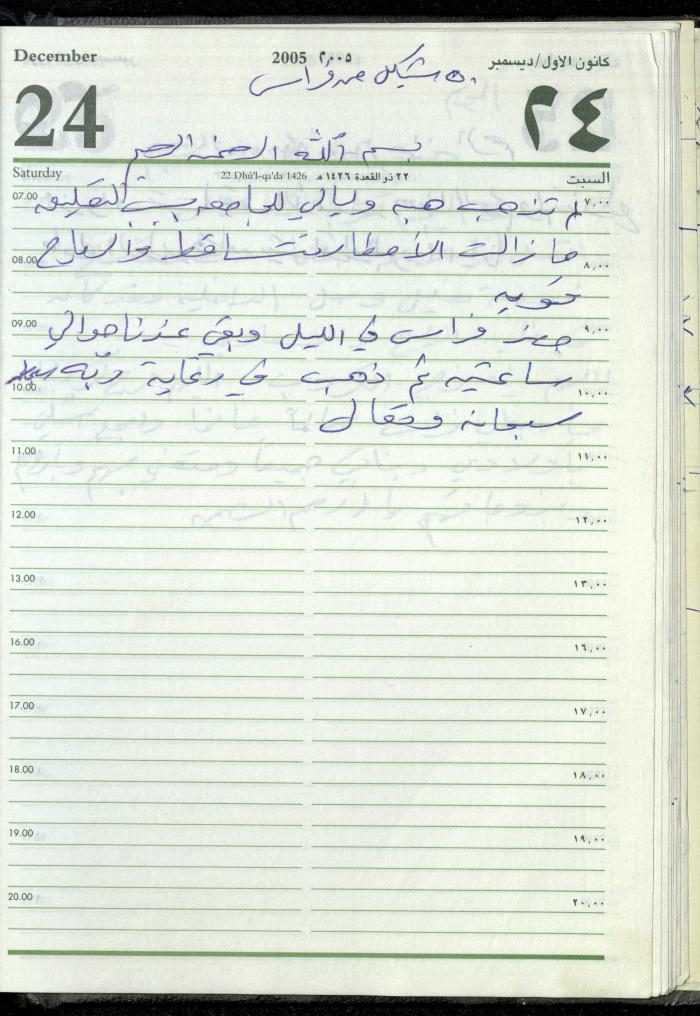 December 2005 ٢٠٠٥ كانون الأول/ديسمبر
٥٠ شيكل من فراس
24 ٢٤
بسم الله الرحمن الرحيم
Saturday 22 Dhū'l-qa'da 1426 ٢٢ ذو القعدة ١٤٢٦ هـ السبت
07.00 ٧,٠٠
لم تذهب هبه وليالي للجامعه بسبب
ما زالت الأمطار تتساقط والرياح
08.00 ٨,٠٠
قويه
09.00 ٩,٠٠
حضر فراس في الليل وبقي عندنا حوالي
ساعتين ثم ذهب في رعاية ربّه
10.00 ١٠,٠٠
سبحانه وتعالى
11.00 ١١,٠٠
12.00 ١٢,٠٠
13.00 ١٣,٠٠
16.00 ١٦,٠٠
17.00 ١٧,٠٠
18.00 ١٨,٠٠
19.00 ١٩,٠٠
20.00 ٢٠,٠٠